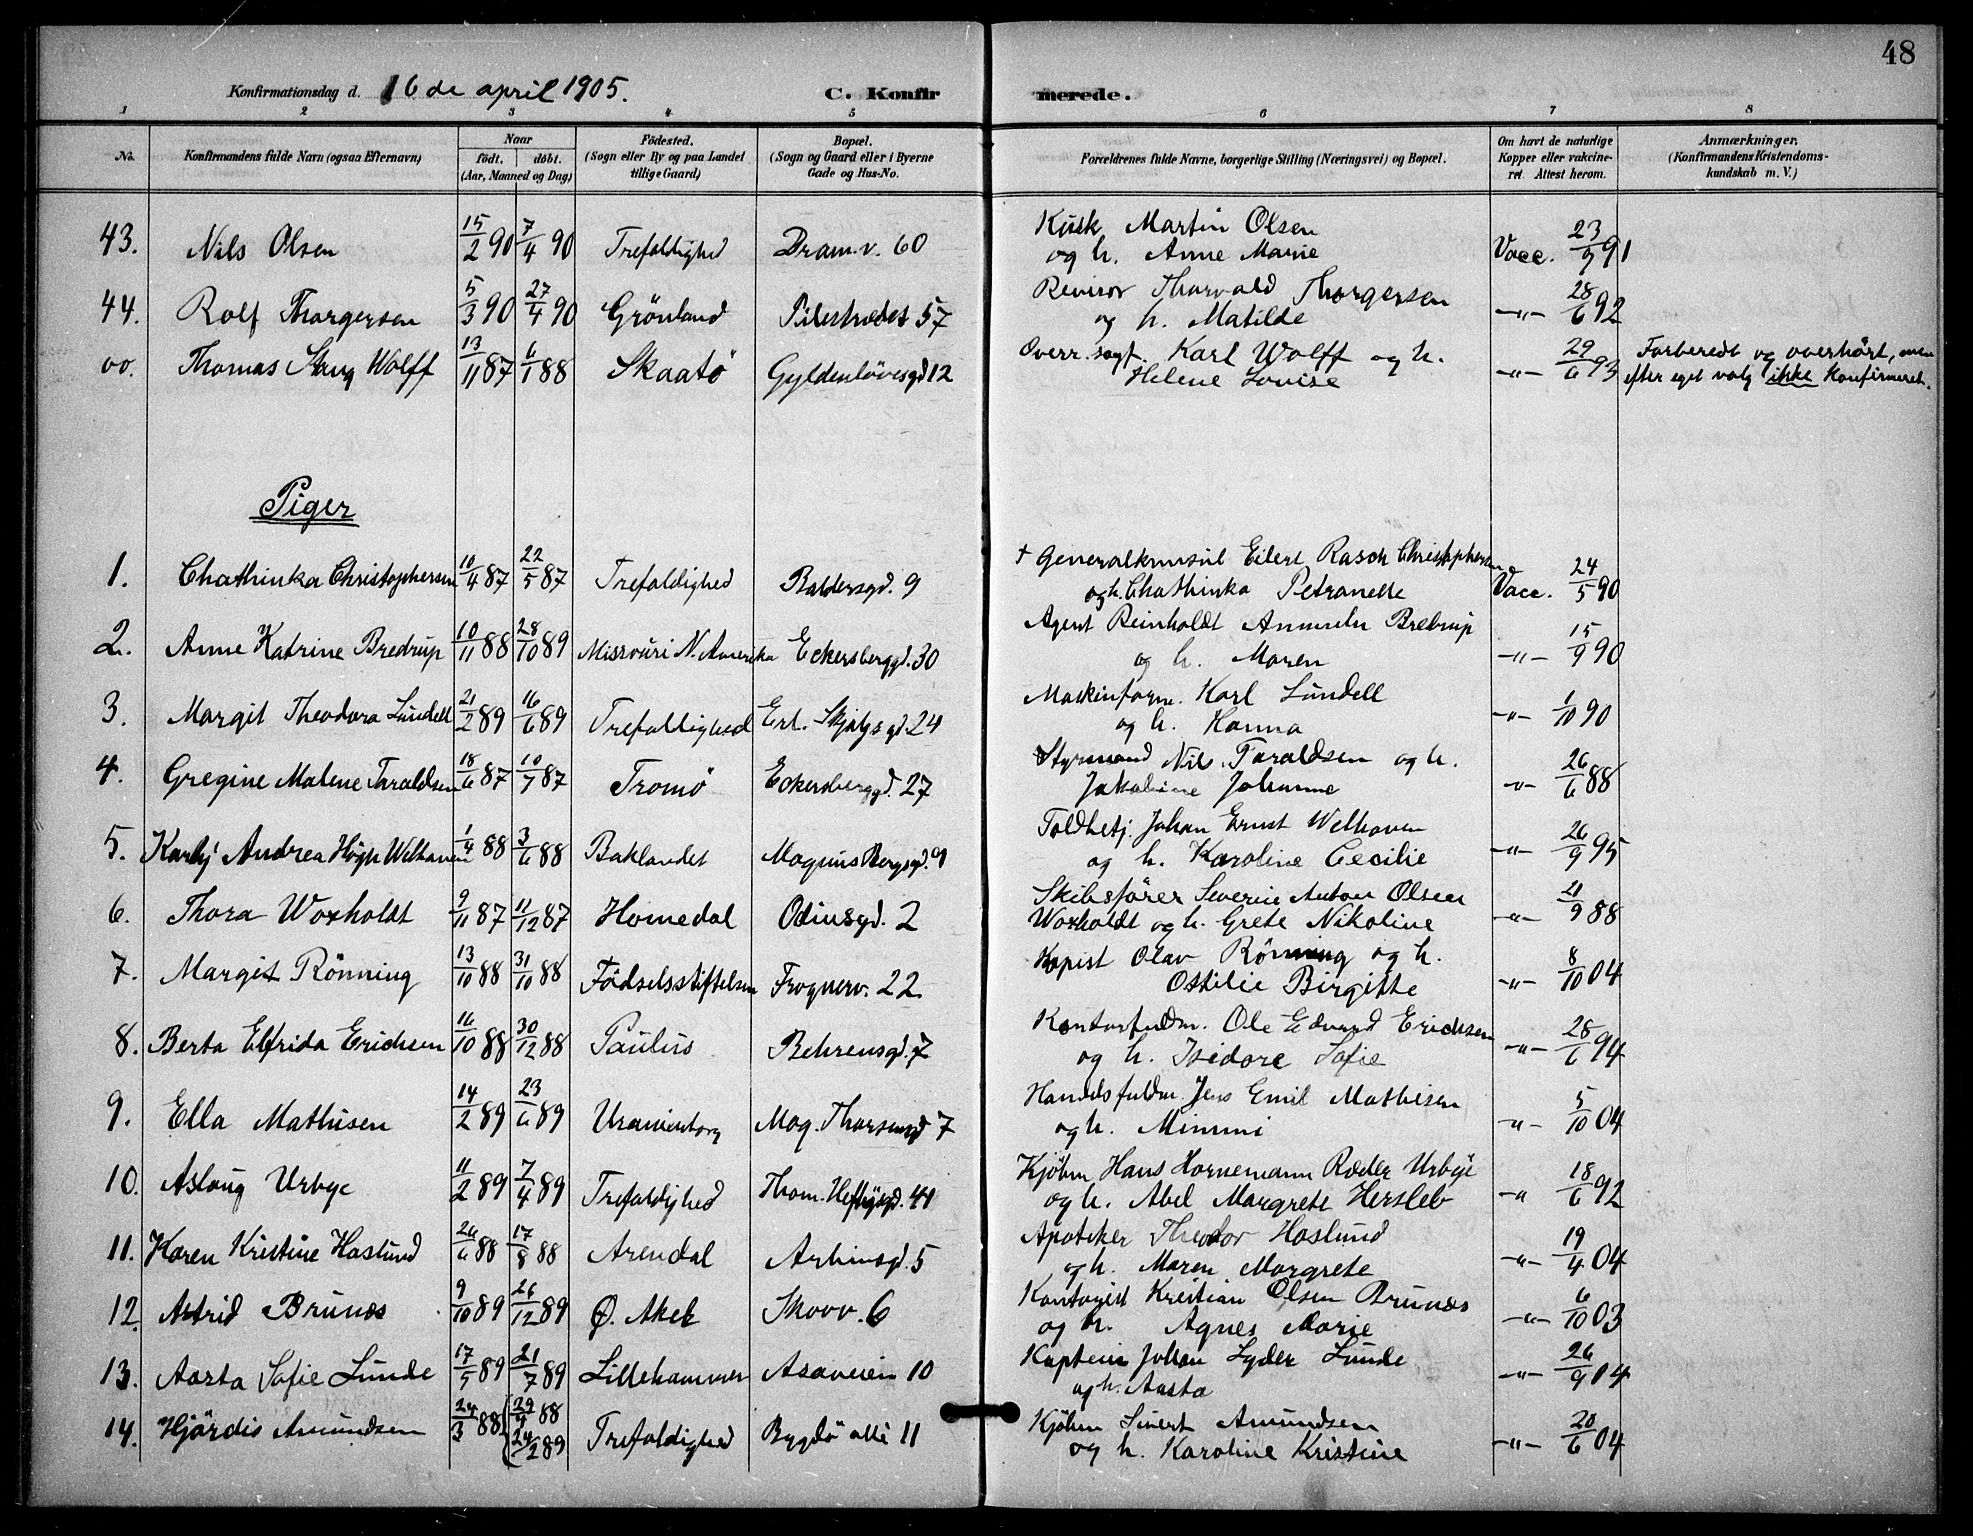 48
Konfirmationsdag d. 16 de april 1905. C. Konfirmerede.
1 2 3 4 5 6 7 8
No. Konfirmandens fulde Navn (ogsaa Efternavn) Naar født, døbt. (Aar, Maaned og Dag) Fødested. (Sogn eller By og paa Landet tillige Gaard) Bopæl. (Sogn og Gaard eller i Byerne Gade og Hus-No. Forældrenes fulde Navne, borgerlige Stilling (Næringsvei) og Bopæl. Om havt de naturlige Kopper eller vakcineret. Attest herom. Anmærkninger. (Konfirmandens Kristendomskundskab m. V.)
43. Nils Olsen 15/2 90 7/4 90 Trefoldighed Dram.v. 60 Kusk Martin Olsen og h. Anne Marie Vacc. 23/9 91
44. Rolf Thorgersen 5/3 90 27/4 90 Grönland Pilestrædet 57 Revisor Thorvald Thorgersen og h. Matilde -"- 28/6 92
00. Thomas Stang Wolff 13/11 87 6/1 88 Skaatö Gyldenlövesgd 12 Overr.sagf. Karl Wolff og h. Helene Lovise -"- 29/6 93 Forberedt og overhört, men efter eget valg ikke konfirmeret.
Piger
1. Chathinka Christophersen 10/4 87 22/5 87 Trefoldighed Baldersgd. 9 † Generalkonsul Eilert Rasch Christophersen og h. Chathinka Petronelle Vacc. 24/5 90
2. Anne Katrine Bredrup 10/11 88 28/10 89 Missouri N. Amerika Eckersberggd. 30 Agent Reinholdt Bredrup og h. Maren -"- 15/9 90
3. Margit Theodora Lundell 21/2 89 16/6 89 Trefoldighed Erl. Skjalgs gd. 24 Maskinform. Karl Lundell og h. Hanna -"- 1/10 90
4. Gregine Malene Taraldsen 18/6 87 10/7 87 Tromö Eckersberggd. 27 Styrmand Nils Taraldsen og h. Jakobine Johanne -"- 26/6 88
5. Andrea Høgh Welhaven 1/4 88 3/6 88 Baklandet Magnus Bergsgd. 9 Toldbetj. Johan Ernst Welhaven og h. Karoline Cecilie -"- 26/9 95
6. Thora Woxholdt 9/11 87 11/12 87 Homedal Odinsgd. 2 Skibsförer Severin Anton Olsen Woxholdt og h. Grete Nikoline -"- 21/9 88
7. Margit Rönning 13/10 88 31/10 88 Födselsstiftelsen Frognerv. 22 Kopist Olav Rönning og h. Ostilie Birgitte -"- 8/10 04
8. Berta Elfrida Erichsen 16/10 88 30/12 88 Paulus Behrensgd. 7 Kontorfuldm. Ole Edvard Erichsen og h. Isidore Sofie -"- 28/6 94
9. Ella Mathisen 14/2 89 23/6 89 Uranienborg Mag. Thorsensgd 7 Handelsfuldm. Jens Emil Mathisen og h. Mimmi -"- 5/10 04
10. Aslaug Urbye 11/2 89 7/4 89 Trefoldighed Thom. Heftyesgd. 41 Kjöbm Hans Hornemann Ræder Urbye og h. Abel Margrete Hersleb -" 18/6 92
11. Karen Kristine Haslund 26/6 88 17/8 88 Arendal Arbinsgd. 5 Apoteker Theodor Haslund og h. Maren Margrete -"- 19/4 04
12. Astrid Brunæs 9/10 89 26/12 89 Ø. Aker Skovv. 6 Kontorist Kristian Olsen Brunæs og h. Agnes Marie -"- 6/10 03
13. Aasta Sofie Lunde 17/5 89 21/7 89 Lillehammer Asaveien 10 Kaptein Johan Lyder Lunde og h. Aasta -"- 26/9 04
14. Hjördis Amundsen 24/3 88 29/4 88 24/2 89 Trefoldighed Bygdö alle 11 Kjöbm Sivert Amundsen og h. Karoline Kristine -"- 20/6 04